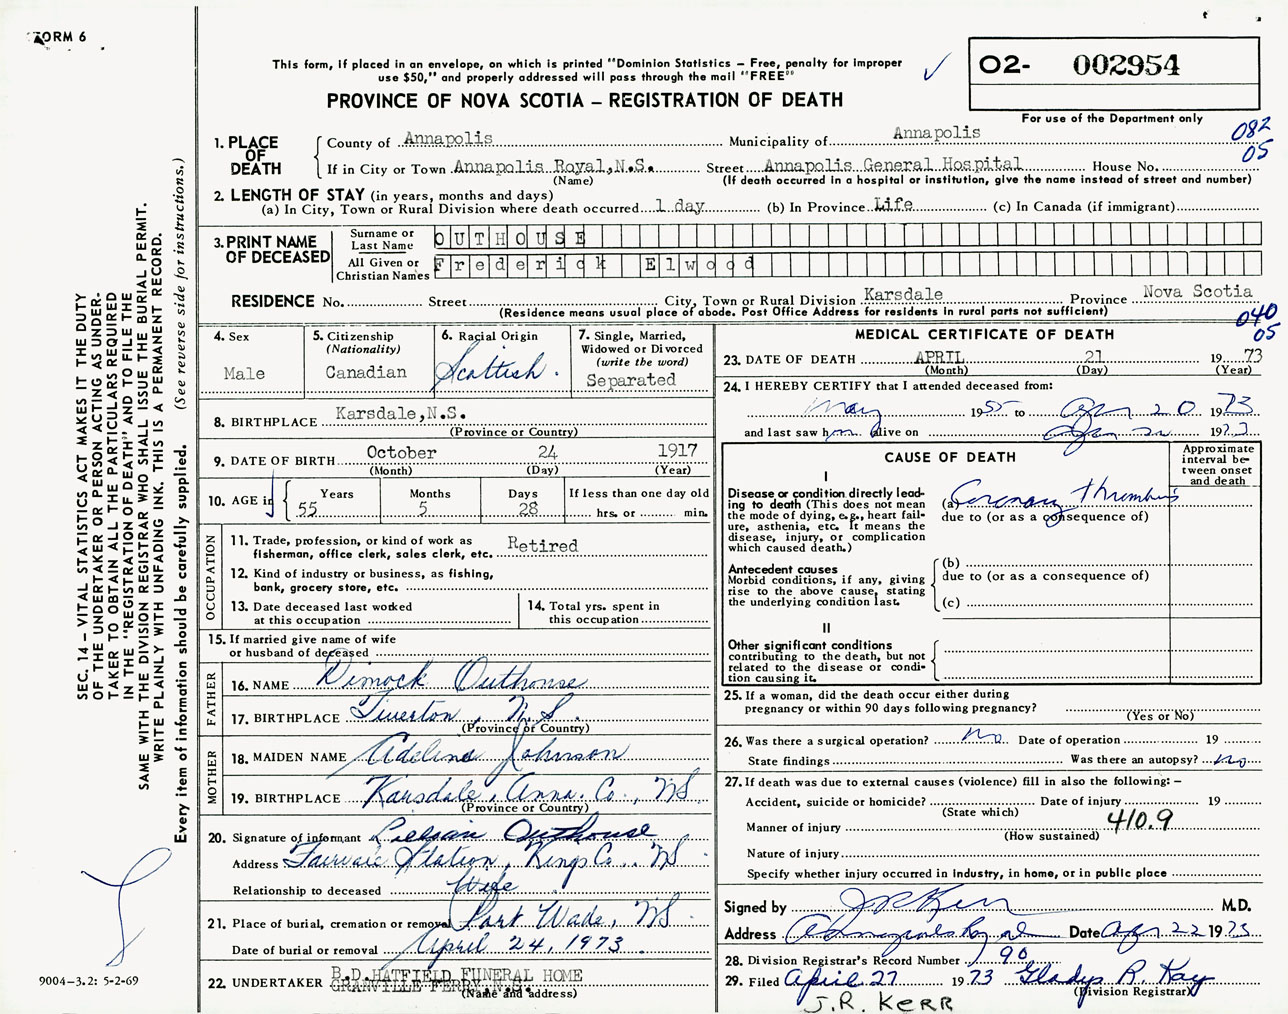 FORM 6
This form, if placed in an envelope, on which is printed "Dominion Statistics – Free, penalty for improper
use $50," and properly addressed will pass through the mail "FREE"
PROVINCE OF NOVA SCOTIA – REGISTRATION OF DEATH
02- 002954
For use of the Department only
082
05
1. PLACE OF DEATH
County of Annapolis Municipality of Annapolis
If in City or Town Annapolis Royal, N.S. Street Annapolis General Hospital House No.
(Name) (If death occurred in a hospital or institution, give the name instead of street and number)
2. LENGTH OF STAY (in years, months and days)
(a) In City, Town or Rural Division where death occurred 1 day (b) In Province Life (c) In Canada (if immigrant)
3. PRINT NAME OF DECEASED
Surname or Last Name OUTHOUSE
All Given or Christian Names Frederick Elwood
RESIDENCE No. Street City, Town or Rural Division Karsdale Province Nova Scotia
(Residence means usual place of abode. Post Office Address for residents in rural parts not sufficient)
040
05
4. Sex
Male
5. Citizenship
(Nationality)
Canadian
6. Racial Origin
Scottish.
7. Single, Married,
Widowed or Divorced
(write the word)
Separated
8. BIRTHPLACE Karsdale, N.S.
(Province or Country)
9. DATE OF BIRTH October 24 1917
(Month) (Day) (Year)
10. AGE in
Years Months Days If less than one day old
55 5 28 hrs. or min.
OCCUPATION
11. Trade, profession, or kind of work as
fisherman, office clerk, sales clerk, etc. Retired
12. Kind of industry or business, as fishing,
bank, grocery store, etc.
13. Date deceased last worked
at this occupation
14. Total yrs. spent in
this occupation
15. If married give name of wife
or husband of deceased
FATHER
16. NAME Dimock Outhouse
17. BIRTHPLACE Tiverton, N.S.
(Province or Country)
MOTHER
18. MAIDEN NAME Adelina Johnson
19. BIRTHPLACE Karsdale, Anna. Co., NS
(Province or Country)
20. Signature of informant Lillian Outhouse
Address Station, Kings Co., NS
Relationship to deceased Wife
21. Place of burial, cremation or removal Port Wade, NS
Date of burial or removal April 24, 1973
22. UNDERTAKER B.D. HATFIELD FUNERAL HOME
GRANVILLE FERRY, N.S.
(Name and address)
MEDICAL CERTIFICATE OF DEATH
23. DATE OF DEATH APRIL 21 1973
(Month) (Day) (Year)
24. I HEREBY CERTIFY that I attended deceased from:
May 1955 to Apr 20 1973
and last saw him alive on Apr 20 1973
CAUSE OF DEATH
Approximate
interval be-
tween onset
and death
I
Disease or condition directly lead-
ing to death (This does not mean
the mode of dying, e.g., heart fail-
ure, asthenia, etc. It means the
disease, injury, or complication
which caused death.)
(a) Coronary Thrombosis
due to (or as a consequence of)
Antecedent causes
Morbid conditions, if any, giving
rise to the above cause, stating
the underlying condition last.
(b)
due to (or as a consequence of)
(c)
II
Other significant conditions
contributing to the death, but not
related to the disease or condi-
tion causing it.
25. If a woman, did the death occur either during
pregnancy or within 90 days following pregnancy?
(Yes or No)
26. Was there a surgical operation? no Date of operation 19
State findings Was there an autopsy? no
27. If death was due to external causes (violence) fill in also the following: –
Accident, suicide or homicide? Date of injury 19
(State which)
Manner of injury 410.9
(How sustained)
Nature of injury
Specify whether injury occurred in industry, in home, or in public place
Signed by J R Kerr M.D.
Address Annapolis Royal Date Apr 22 1973
28. Division Registrar's Record Number 90
29. Filed April 27 1973 Gladys R. Kay
(Division Registrar)
J.R. KERR
SEC. 14 – VITAL STATISTICS ACT MAKES IT THE DUTY
OF THE UNDERTAKER OR PERSON ACTING AS UNDER-
TAKER TO OBTAIN ALL THE PARTICULARS REQUIRED
IN THE "REGISTRATION OF DEATH" AND TO FILE THE
SAME WITH THE DIVISION REGISTRAR WHO SHALL ISSUE THE BURIAL PERMIT.
WRITE PLAINLY WITH UNFADING INK. THIS IS A PERMANENT RECORD.
Every item of information should be carefully supplied. (See reverse side for instructions.)
9004–3.2: 5-2-69